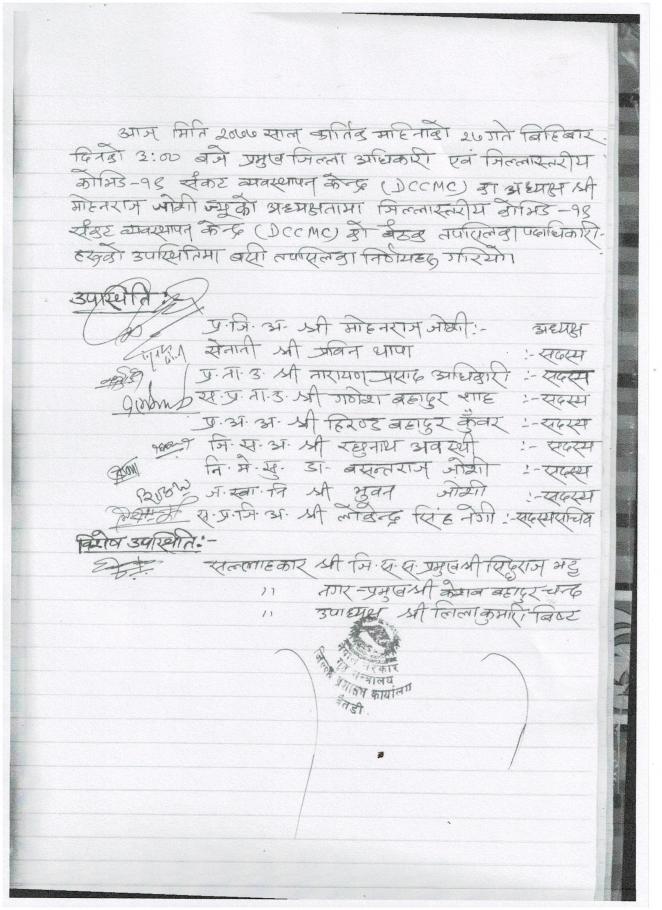 आज मिति २०७७ साल कार्तिक महिनाको २७ गते बिहिबार
दिनको ३:०० बजे प्रमुख जिल्ला अधिकारी एवं जिल्लास्तरीय
कोभिड-१९ संकट व्यवस्थापन केन्द्र (DCCMC) का अध्यक्ष श्री
मोहनराज जोशी ज्यूको अध्यक्षतामा जिल्लास्तरीय कोभिड-१९
संकट व्यवस्थापन केन्द्र (DCCMC) को बैठक तपसिलका पदाधिकारी-
हरुको उपस्थितिमा बसी तपसिलका निर्णयहरु गरियो।
उपस्थिति :-
प्र.जि.अ. श्री मोहनराज जोशी:- अध्यक्ष
सेनानी श्री प्रविन थापा :- सदस्य
प्र.ना.उ. श्री नारायण प्रसाद अधिकारी :- सदस्य
स.प्र.ना.उ. श्री गणेश बहादुर शाह :- सदस्य
प्र.अ.अ. श्री हिरण्ड बहादुर कुँवर :- सदस्य
जि.स.अ. श्री रघुनाथ अवस्थी :- सदस्य
नि.मे.सु. डा. बसन्तराज जोशी :- सदस्य
ज.स्वा.नि श्री भुवन जोशी :- सदस्य
स.प्र.जि.अ. श्री लोकेन्द्र सिंह नेगी :- सदस्यसचिव
विशेष उपस्थिति:-
सल्लाहकार श्री जि.स.स. प्रमुख श्री सिद्धराज भट्ट
,, नगर-प्रमुख श्री केशव बहादुर चन्द
,, उपाध्यक्ष श्री लिला कुमारी बिष्ट
नेपाल सरकार
गृह मन्त्रालय
जिल्ला प्रशासन कार्यालय
बैतडी